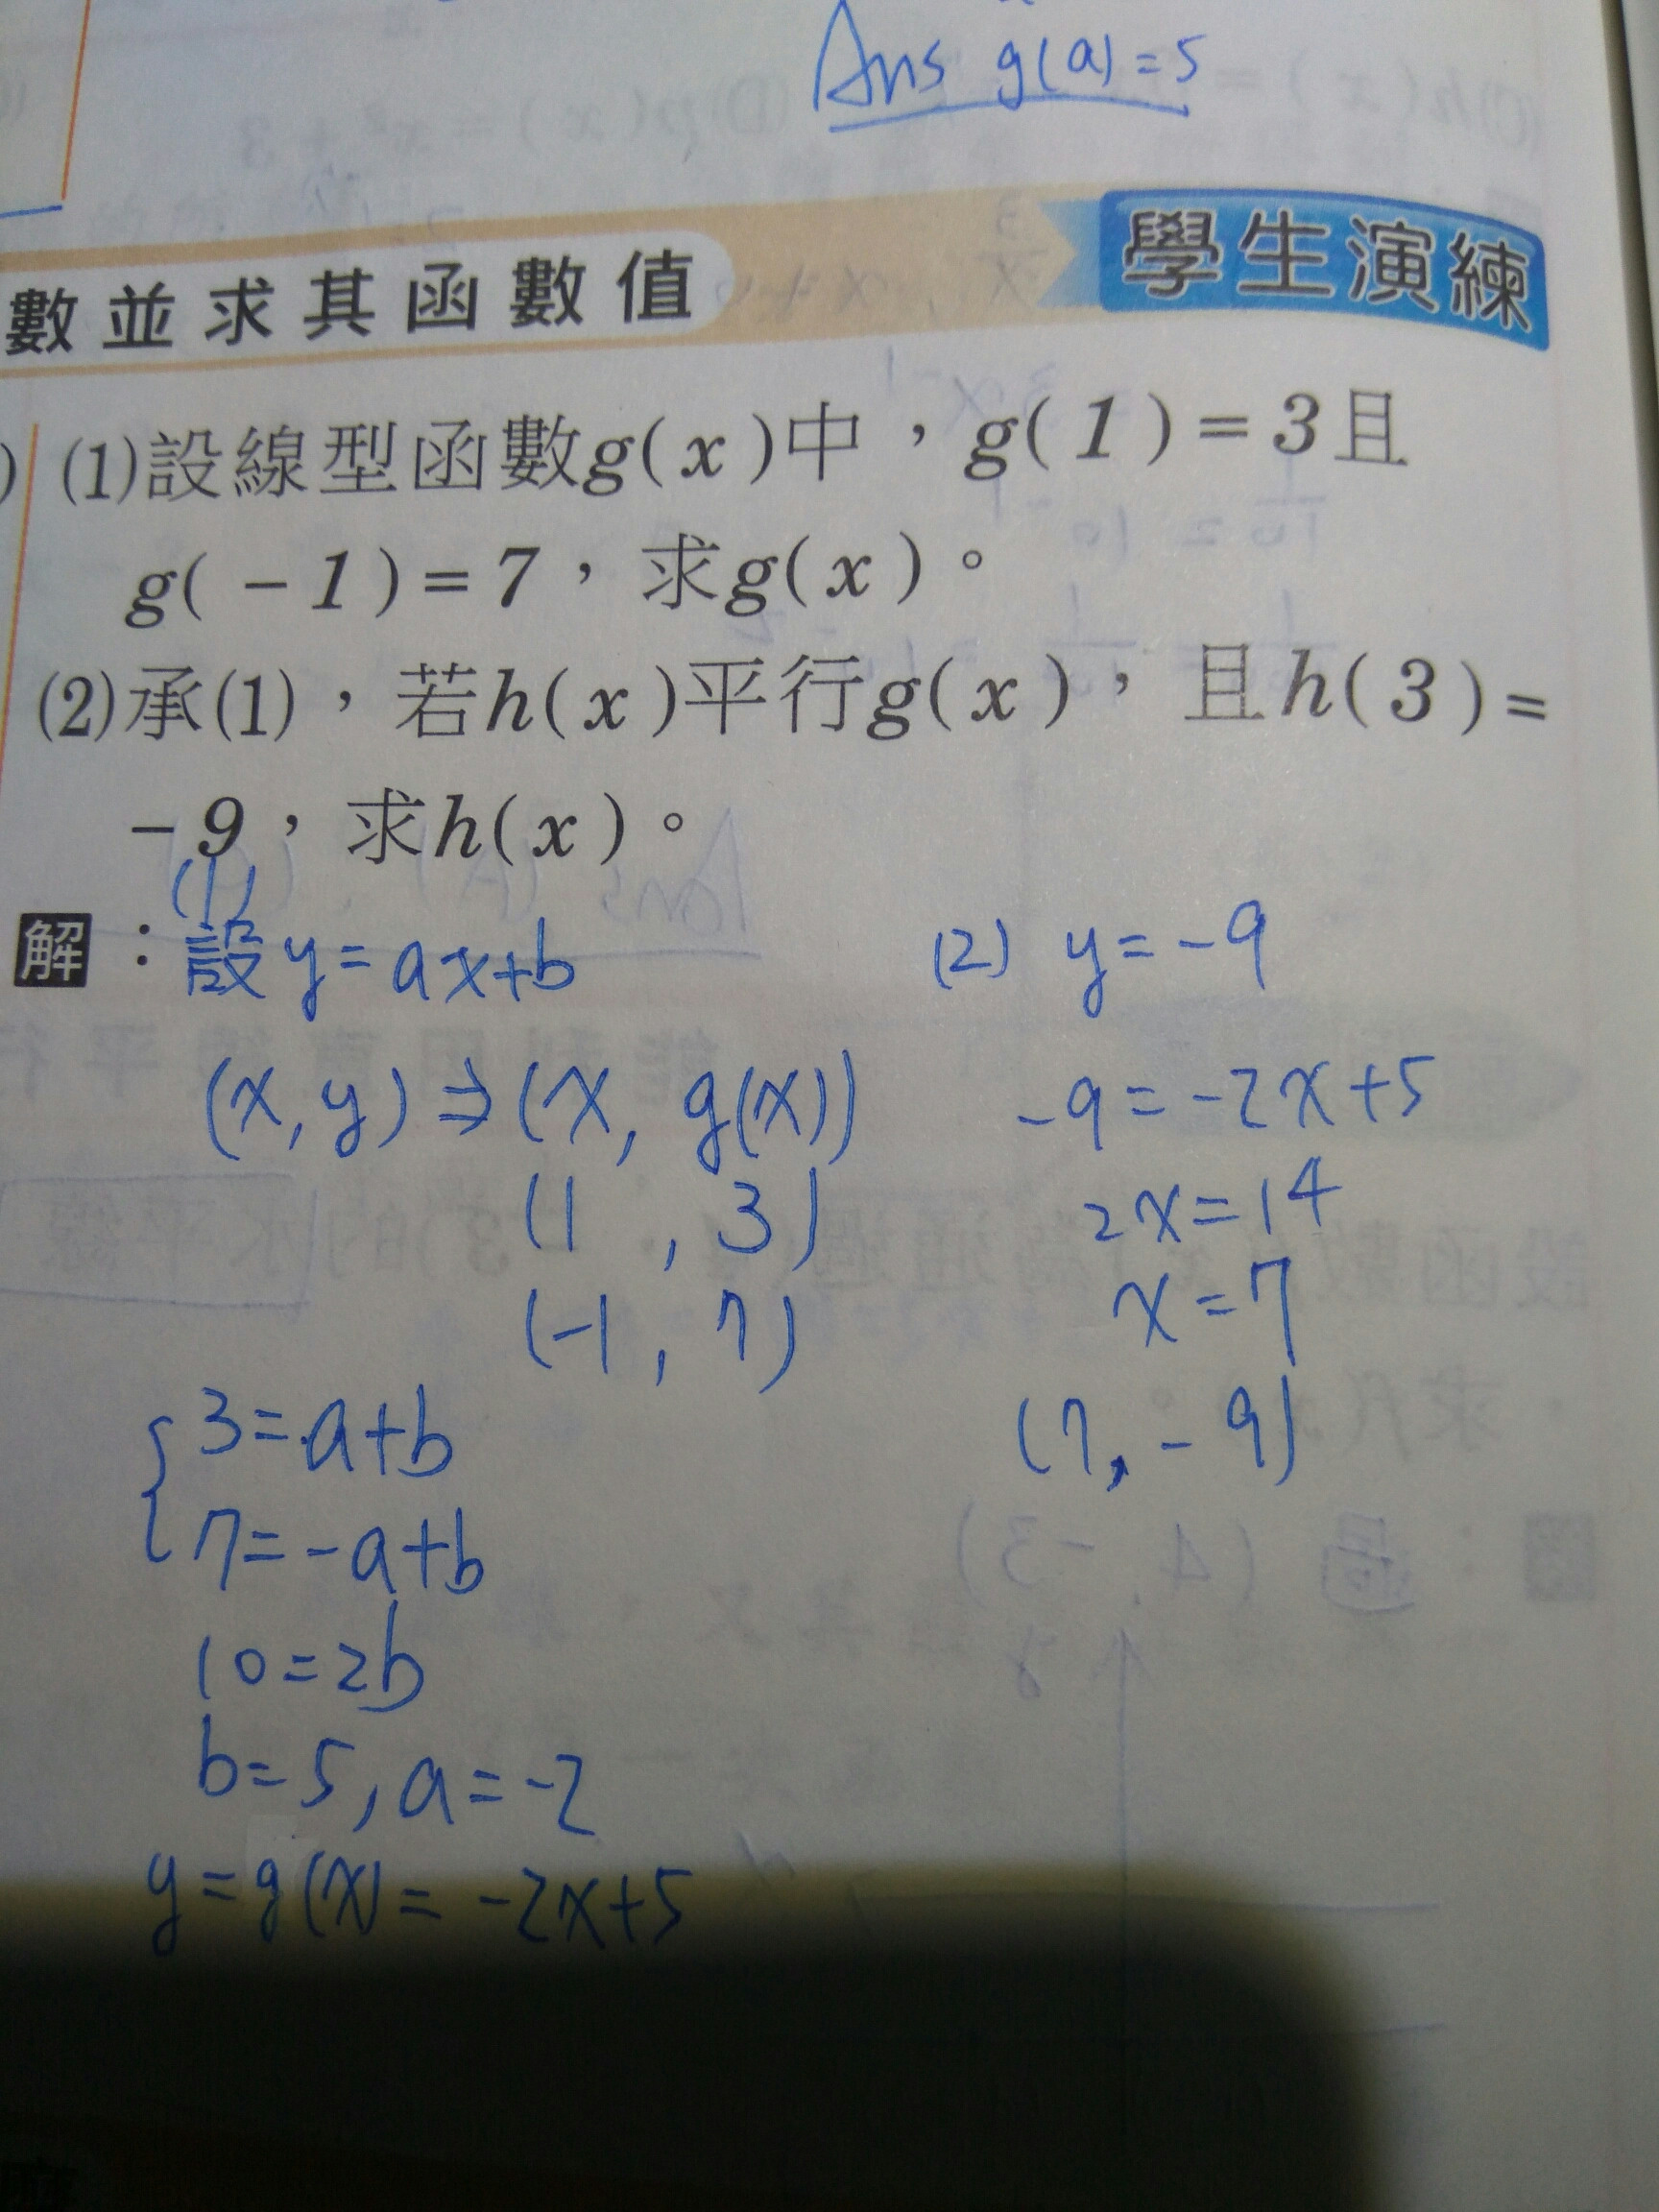 Ans g(a)=5
學生演練
數並求其函數值
(1)設線型函數g(x)中，g(1)=3且
g(-1)=7，求g(x)。
(2)承(1)，若h(x)平行g(x)，且h(3)=
-9，求h(x)。
(1)
解：設y=ax+b
(x,y)⇒(x, g(x))
(1, 3)
(-1, 7)
{3=a+b
7=-a+b
10=2b
b=5, a=-2
y=g(x)=-2x+5
(2) y=-9
-9=-2x+5
2x=14
x=7
(7,-9)